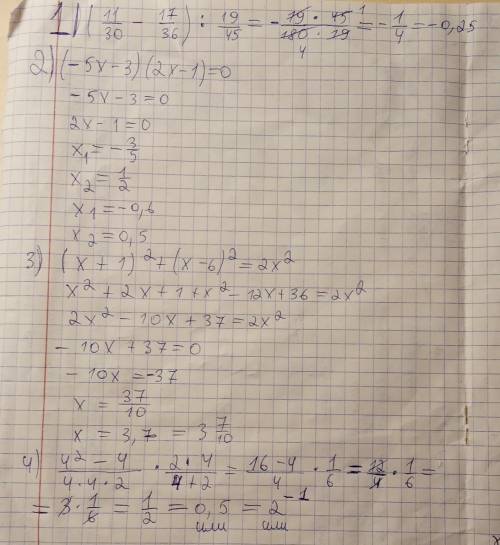 1) (11/30 - 17/36) : 19/45 = - 19 · 45 / 180 · 19 = - 1/4 = -0,25
1
4
2) (-5x-3)(2x-1)=0
-5x-3=0
2x-1=0
x₁ = -3/5
x₂ = 1/2
x₁ = -0,6
x₂ = 0,5
3) (x+1)² + (x-6)² = 2x²
x² + 2x + 1 + x² - 12x + 36 = 2x²
2x² - 10x + 37 = 2x²
-10x + 37 = 0
-10x = -37
x = 37/10
x = 3,7 = 3 7/10
4) 4² - 4 / 4 · 4 · 2 · 2 · 4 / 4 + 2 = 16 - 4 / 4 · 1/6 = 12/4 · 1/6 =
= 3 · 1/6 = 1/2 = 0,5 = 2⁻¹
или или